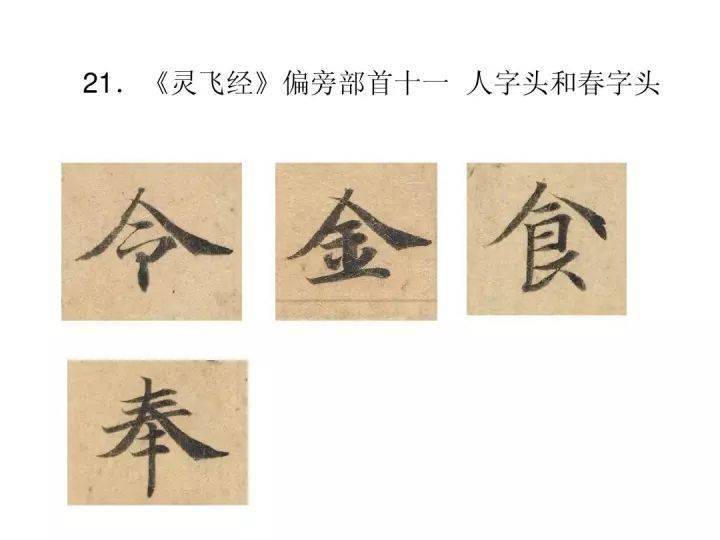 21．《灵飞经》偏旁部首十一 人字头和春字头
令 金 食
奉